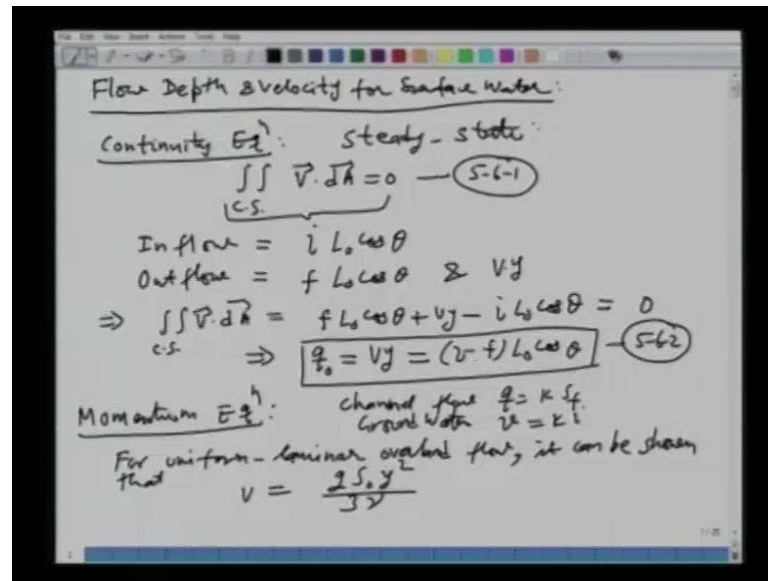 Flow Depth & Velocity for Surface Water:
Continuity Eqⁿ: Steady-state:
∬ V⃗·dA⃗ = 0 — (5-6-1)
C.S.
Inflow = i L₀ cos θ
Outflow = f L₀ cos θ & V.y
⇒ ∬ V⃗·dA⃗ = f L₀ cos θ + Vy - i L₀ cos θ = 0
C.S.
⇒ q₀ = Vy = (i-f) L₀ cos θ — (5-6-2)
Momentum Eqⁿ: Channel flow q = K Sf.
Ground Water v = K i
For uniform-laminar overland flow, it can be shown
that V = g S₀ y² / 3ν